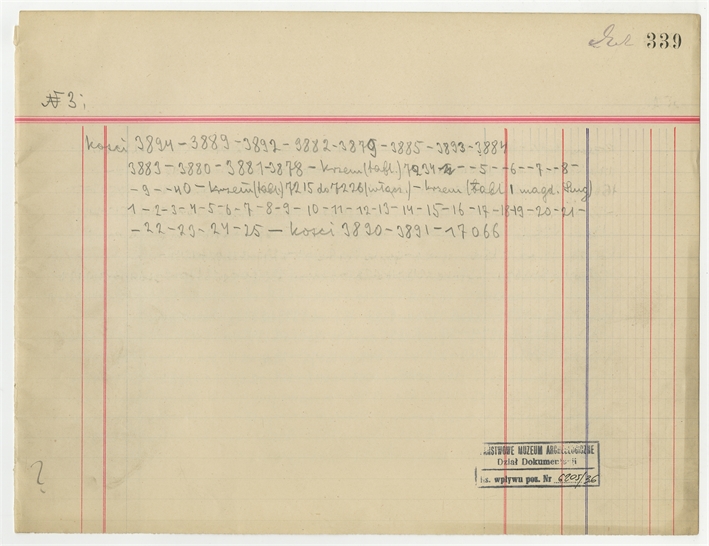 339
№ 3;
kości 3894-3889-3892-3882-3879-3885-3893-3884
3883-3880-3881-3878-krzem(tabl.) 7234- -5- -6-7-8-
-9- -40-krzem(tabl.) 7215 do 7226 -krzem (tabl 1 magd.
1-2-3-4-5-6-7-8-9-10-11-12-13-14-15-16-17-18-19-20-21-
-22-23-24-25-kości 3890-3891-17066
PAŃSTWOWE MUZEUM ARCHEOLOGICZNE
Dział Dokumentacji
Ks. wpływu poz. Nr 6205/36
?